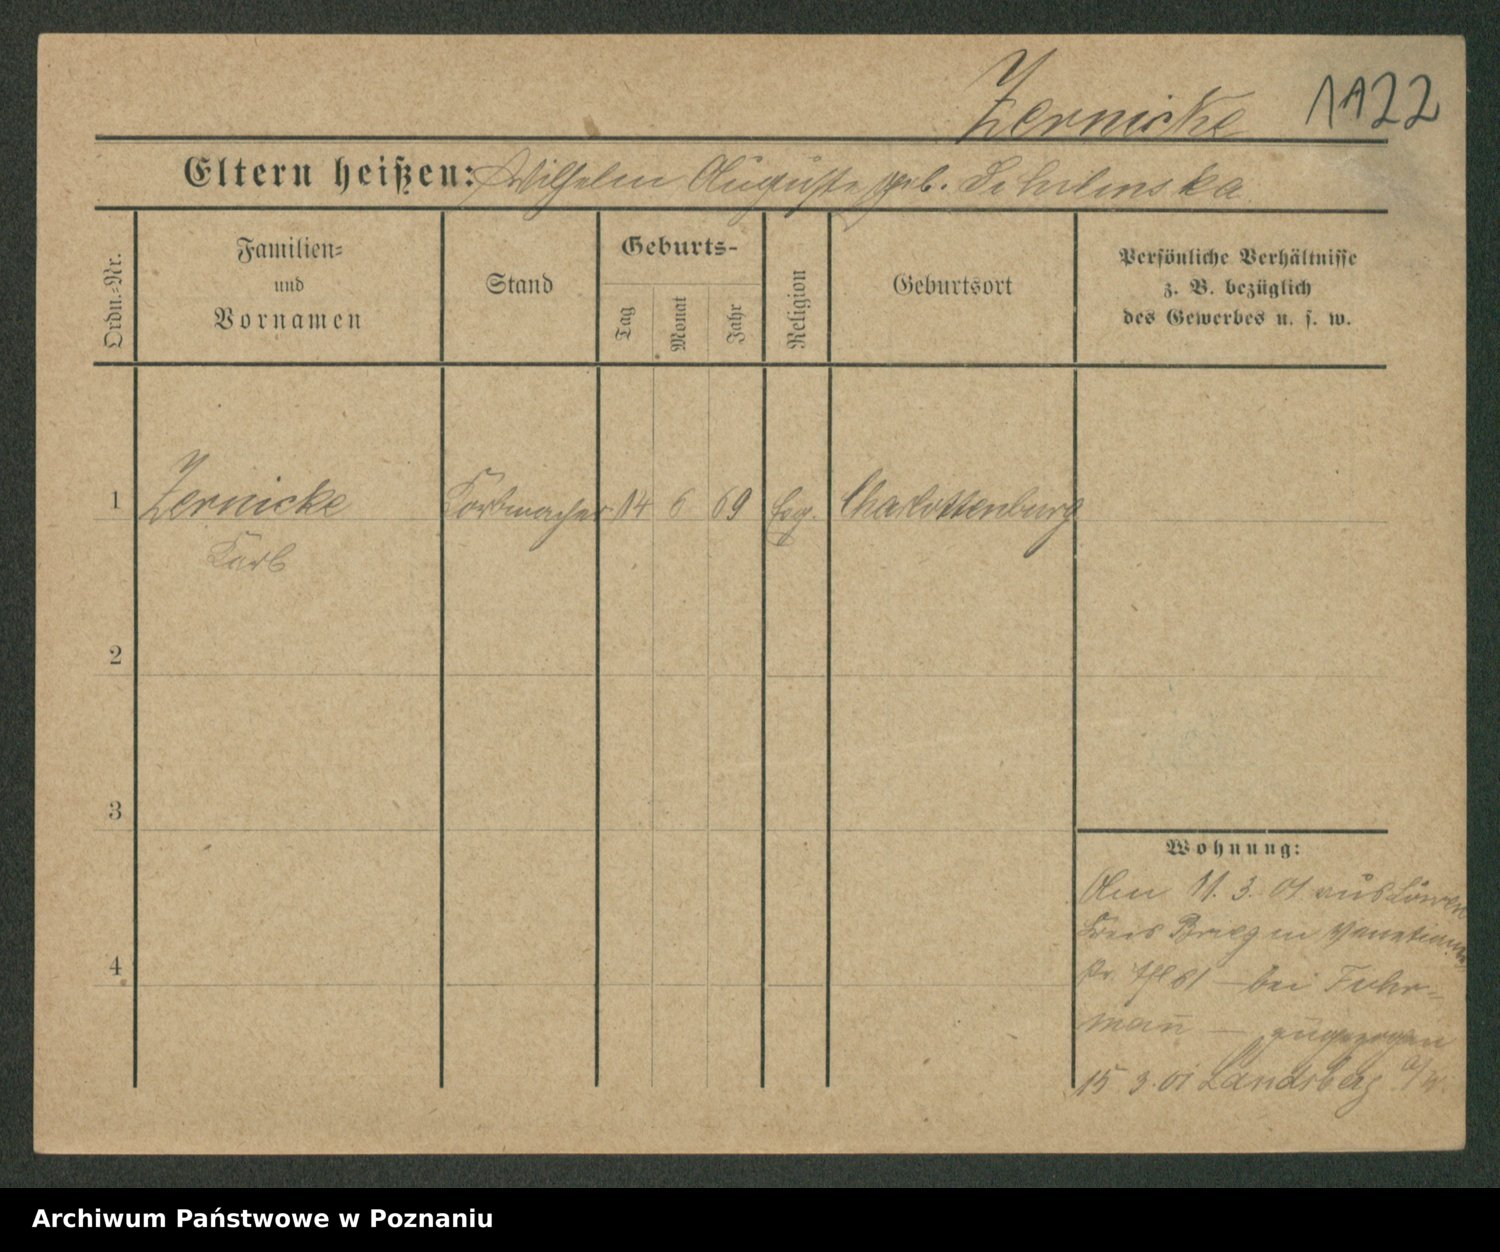 Zernicke 1122
Eltern heißen: Wilhelm Auguste geb. Schilinska
Ordn.=Nr.
Familien=
und
Vornamen
Stand
Geburts-
Tag
Monat
Jahr
Religion
Geburtsort
Persönliche Verhältnisse
z. B. bezüglich
des Gewerbes u. s. w.
1 Zernicke Korbmacher 14 6 69 Evg. Charlottenburg
Karl
2
3
Wohnung:
Am 11. 3. 01 aus Löwen
Kreis Brieg in
4
bei Fuhr-
mann — zugezogen
15 3. 01 Landsberg a/W
Archiwum Państwowe w Poznaniu